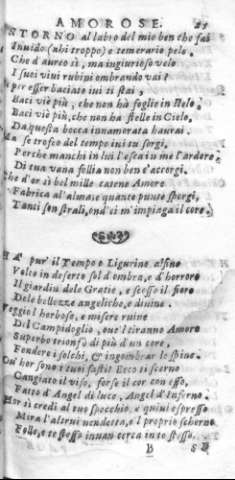 AMOROSE. 25
NTORNO al labro del mio ben che fai
Inuido (ahi troppo) e temerario pelo.
Che d'aureo sì, ma ingiurioso velo
I suoi viui rubini ombrando vai?
per esser baciato iui ti stai,
Baci viè più, che non hà foglie in Delo.
Baci viè più, che non hà stelle in Cielo,
Da questa bocca innamorata haurai.
se trofeo del tempo iui tu sorgi,
Perche manchi in lui l'esca in me l'ardore,
Di tua vana follia non ben t'accorgi.
che d'or sì bel mille catene Amore
Fabrica al'alma: e quante punte sporgi,
Tanti son strali, ond'ei m'impiaga il core.
A' pur'il Tempo ò Ligurino alfine
Volto in deserto sol d'ombra, e d'horrore
Il giardin dele Gratie, e secco il fiore
Dele bellezze angeliche, e diuine.
eggio l'herbose, e misere ruine
Del Campidoglio, oue'l tiranno Amore
Superbo trionfò di più d'un core,
Fendere i solchi, & ingombrar le spine.
hor sono i tuoi fasti? Ecco ti scerno
Cangiato il viso, forse il cor con esso,
Fatto d'Angel di luce, Angel d'Inferno.
Hor sì credi al tuo specchio, e quiui espresso
Mira l'altrui uendetta, e'l proprio scherno
Folle, e te stesso inuan cerca in te stesso.
B